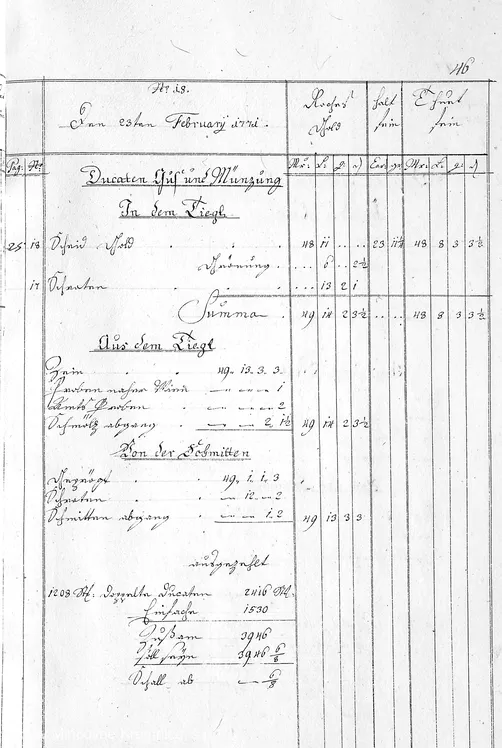 46
No. 18.
Den 23ten February 1771.
Roches Gold
halt fein
Thuet fein
Pag. No.
Mr. L. q. d Car. gr. Mr. L. q. d
Ducaten Gus und Münzung
In dem Tiegl
25 18 Scheid Gold . . . 48 11 . . . 23 11¼ 48 8 3 3½
6 . . 2½
17 Schroten . . . . 13 2 1
Summa . 49 14 2 3½ . . . . 48 8 3 3½
Aus dem Tiegl
Zein . . 49. 13. 3. 3.
Proben naher Wien — — 1
Amts Proben . — — 2
Schmölz abgang . — — 2. 1½ 49 14 2 3½
Von der Schmitten
Geprögt . . 49. 1. 1. 3
Schroten . . — 12. — 2
Schmitten abgang . — — 1. 2 49 13 3 3
ausgezehlt
1208 St: Doppelte Ducaten 2416 St.
Einfache 1530
Zusam 3946
Soll seyn 3946 6/8
Schall ab — 6/8